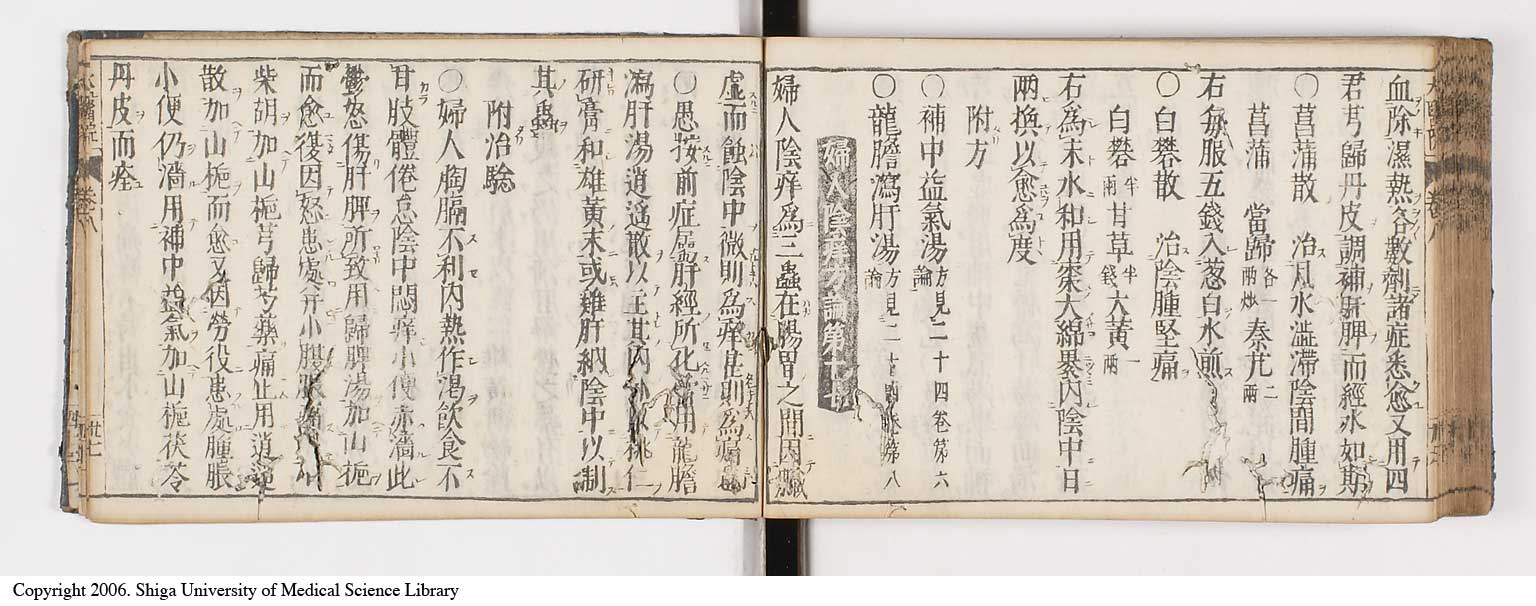 血除濕熱各數劑諸症悉愈又用四
君芎歸丹皮調補肝脾而經水如期
〇菖蒲散　治風水溢滯陰間腫痛
菖蒲　當歸各一兩炒　秦艽二兩
右每服五錢入葱白水煎
〇白礬散　治陰腫堅痛
白礬半兩甘草半錢大黃一兩
右爲末水和用棗大綿裹內陰中日
兩換以愈爲度
附方
〇補中益氣湯方見二十四卷第六論
〇龍膽瀉肝湯方見二十四卷第八論
婦人陰痒方論第十
婦人陰痒爲三蟲在腸胃之間因臟
虛而蝕陰中微則爲痒甚則爲痛也
〇愚按前症屬肝經所化當用龍膽
瀉肝湯逍遙散以主其內外以桃仁
研膏和雄黃末或雞肝納陰中以制
其蟲
附治驗
〇婦人胸膈不利內熱作渴飲食不
甘肢體倦怠陰中悶痒小便赤濇此
鬱怒傷肝脾所致用歸脾湯加山梔
而愈復因怒患處并小腹脹痛用
柴胡加山梔芎歸芍藥痛止用逍遙
散加山梔而愈又因勞役患處腫脹
小便仍濇用補中益氣加山梔茯苓
丹皮而痊
卷八
Copyright 2006. Shiga University of Medical Science Library